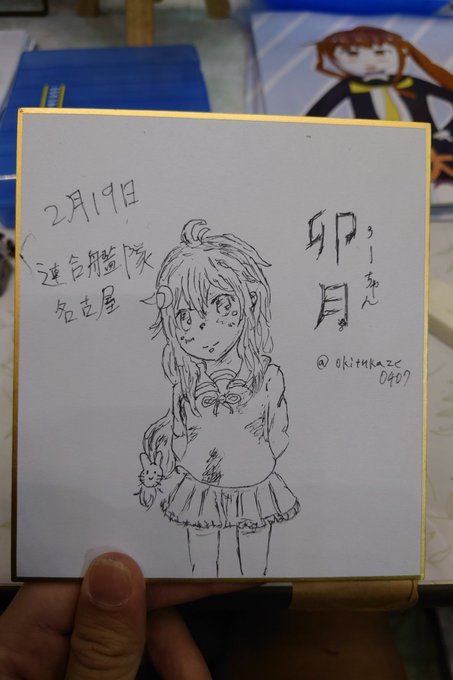 2月19日
連合艦隊
名古屋
卯月
うーちゃん
@okitukaze
0407